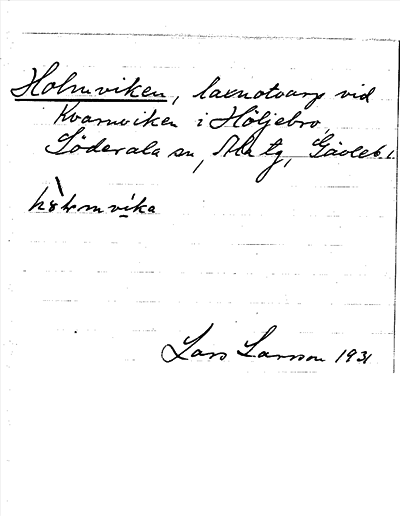 Holmviken, laxnotvarp vid
Kvarnviken i Höljebro,
Söderala sn, Ala tg, Gävleb. l.
Lars Larsson 1931